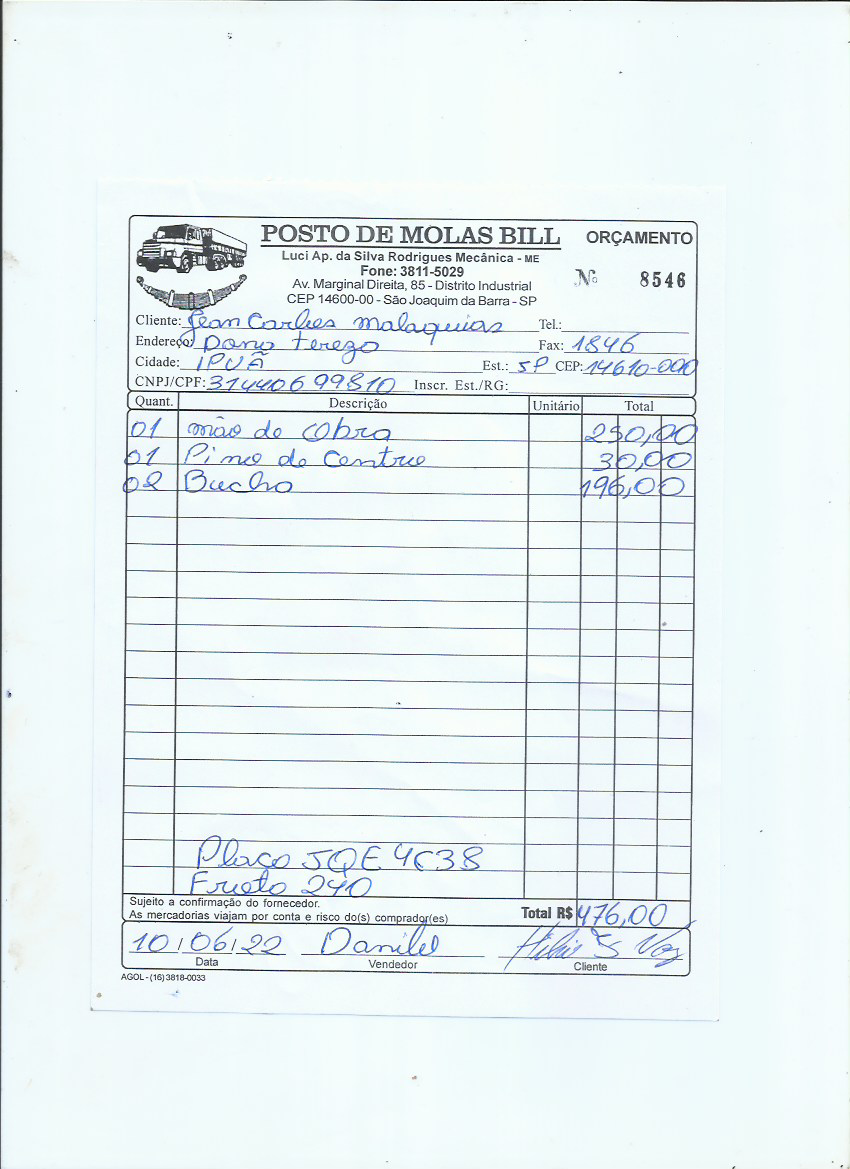 POSTO DE MOLAS BILL ORÇAMENTO
Luci Ap. da Silva Rodrigues Mecânica - ME
Fone: 3811-5029
Nº 8546
Av. Marginal Direita, 85 - Distrito Industrial
CEP 14600-00 - São Joaquim da Barra - SP
Cliente: Jean Carlos Malaquias Tel.:
Endereço: Dona Tereza Fax: 1846
Cidade: IPUÃ Est.: SP CEP: 14610-000
CNPJ/CPF: 31440699810 Inscr. Est./RG:
Quant. Descrição Unitário Total
01 mão de Obra 250,00
01 Pino de Centro 30,00
02 Bucha 196,00
Placa JQE 4C38
Frota 240
Sujeito a confirmação do fornecedor.
As mercadorias viajam por conta e risco do(s) comprador(es) Total R$ 476,00
10/06/22 Danilel
Data Vendedor Cliente
AGOL - (16) 3818-0033